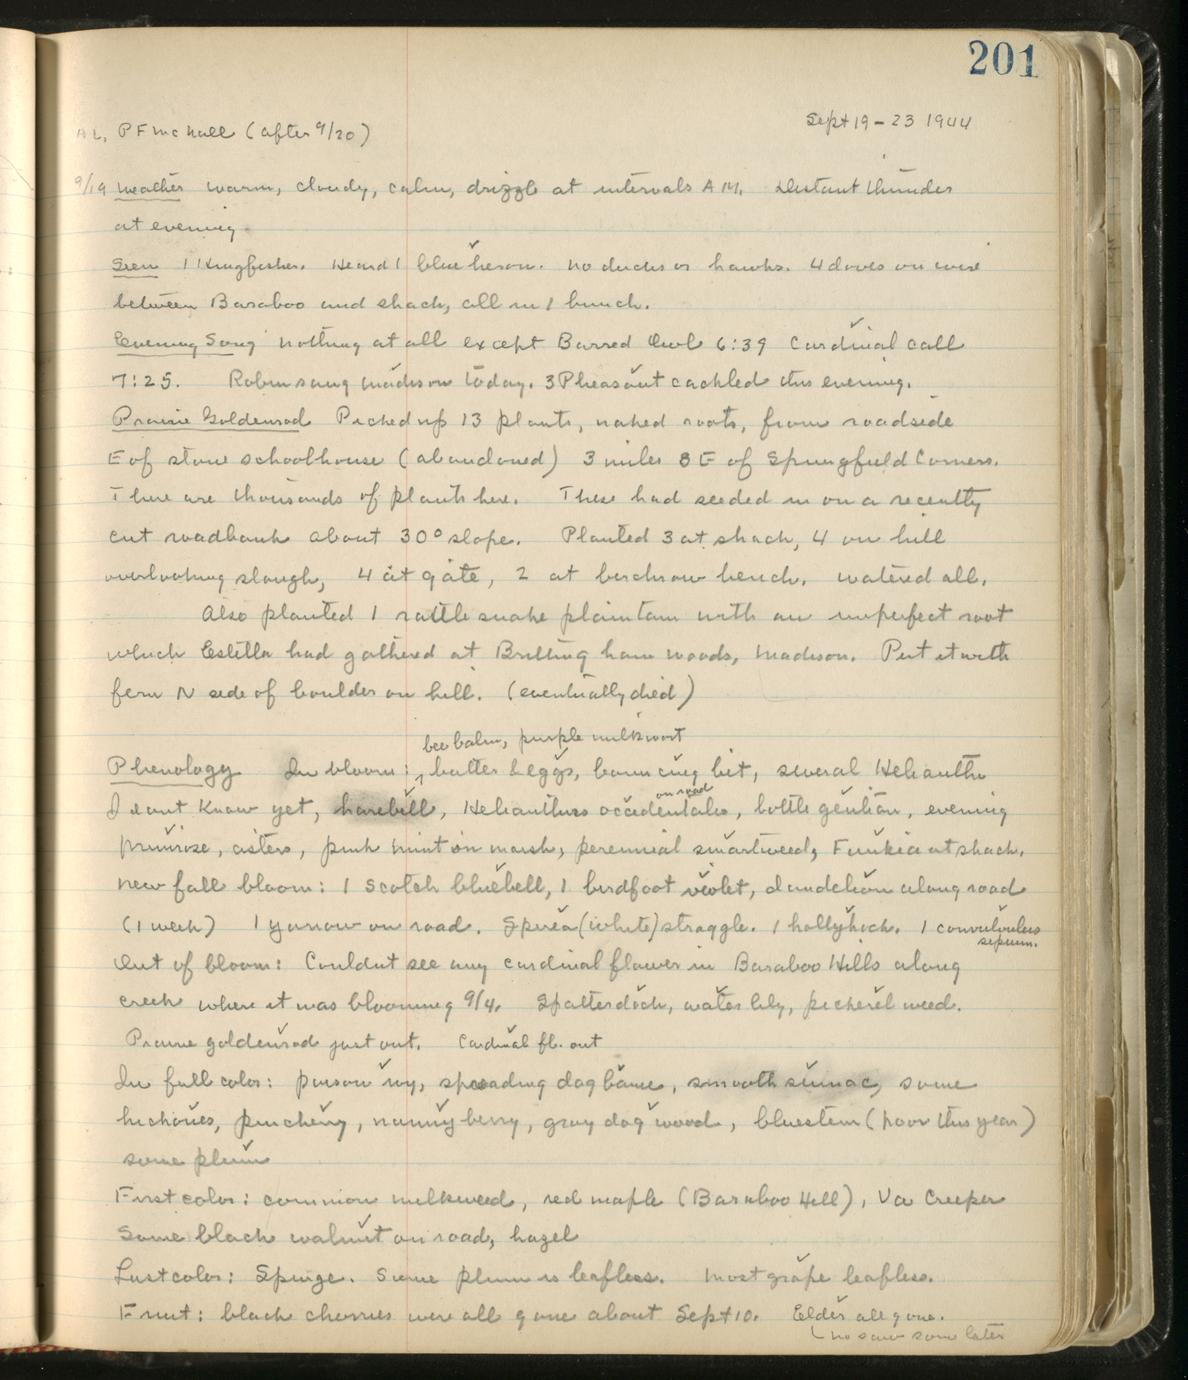 201
AL, PFMcNall (after 9/20)
Sept 19-23 1944
9/19 Weather warm, cloudy, calm, drizzle at intervals A.M. Distant thunder
at evening
Seen 1 Kingfisher. Heard 1 blue heron. No ducks or hawks. 4 doves on wire
between Baraboo and shack, all in 1 bunch.
Evening Song nothing at all except Barred Owl 6:39 Cardinal call
7:25. Robin sang Madison today. 3 Pheasant cackled this evening.
Prairie Goldenrod Picked up 13 plants, naked roots, from roadside
E of stone schoolhouse (abandoned) 3 miles SE of Springfield Corners.
There are thousands of plants here. These had seeded in on a recently
cut roadbank about 30° slope. Planted 3 at shack, 4 on hill
overlooking slough, 4 at gate, 2 at birchrow bench. Watered all.
Also planted 1 rattlesnake plantain with an imperfect root
which Estella had gathered at Brittingham woods, Madison. Put it with
fern N side of boulder on hill. (eventually died)
bee balm, purple milkwort
Phenology In bloom: butter & eggs, bouncing bet, several Helianths
I dont know yet, harebell, Helianthus occidentalis, bottle gentian, evening
on road
primrose, asters, pink mint on marsh, perennial smartweed, Funkia at shack.
New fall bloom: 1 Scotch bluebell, 1 birdfoot violet, dandelion along road
(1 week) 1 yarrow on road. Spirea (white) straggle. 1 hollyhock. 1 convulvulus
sepium.
Out of bloom: Couldnt see any cardinal flower in Baraboo Hills along
creek where it was blooming 9/4. Spatterdock, water lily, pickerel weed.
Prairie goldenrod just out. Cardinal fl. out
In full color: poison ivy, spreading dogbane, smooth sumac, some
hickories, pincherry, nannyberry, gray dogwood, bluestem (poor this year)
some plum
First color: common milkweed, red maple (Baraboo Hill), Va Creeper
Some black walnut on road, hazel
Last color: Spurge. Some plum is leafless. Most grape leafless.
Fruit: black cherries were all gone about Sept 10. Elder all gone.
no saw some later